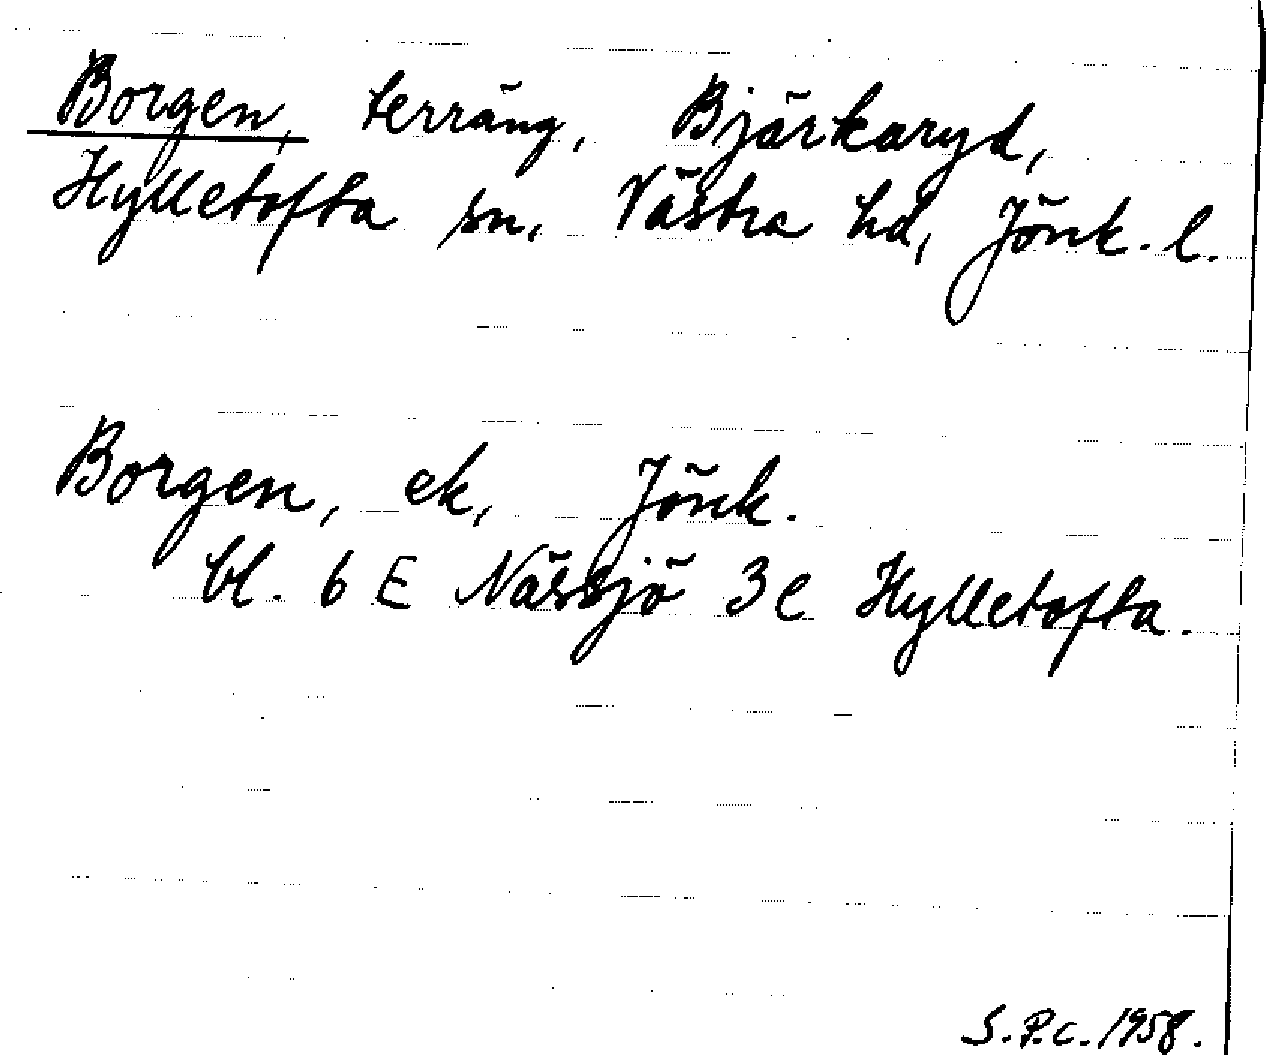 Borgen, terräng, Bjärkaryd,
Hylletofta sn, Västra hd, Jönk. l.
Borgen, ek, Jönk.
bl. 6 E Nässjö 3 e Hylletofta.
S.P.C. 1958.